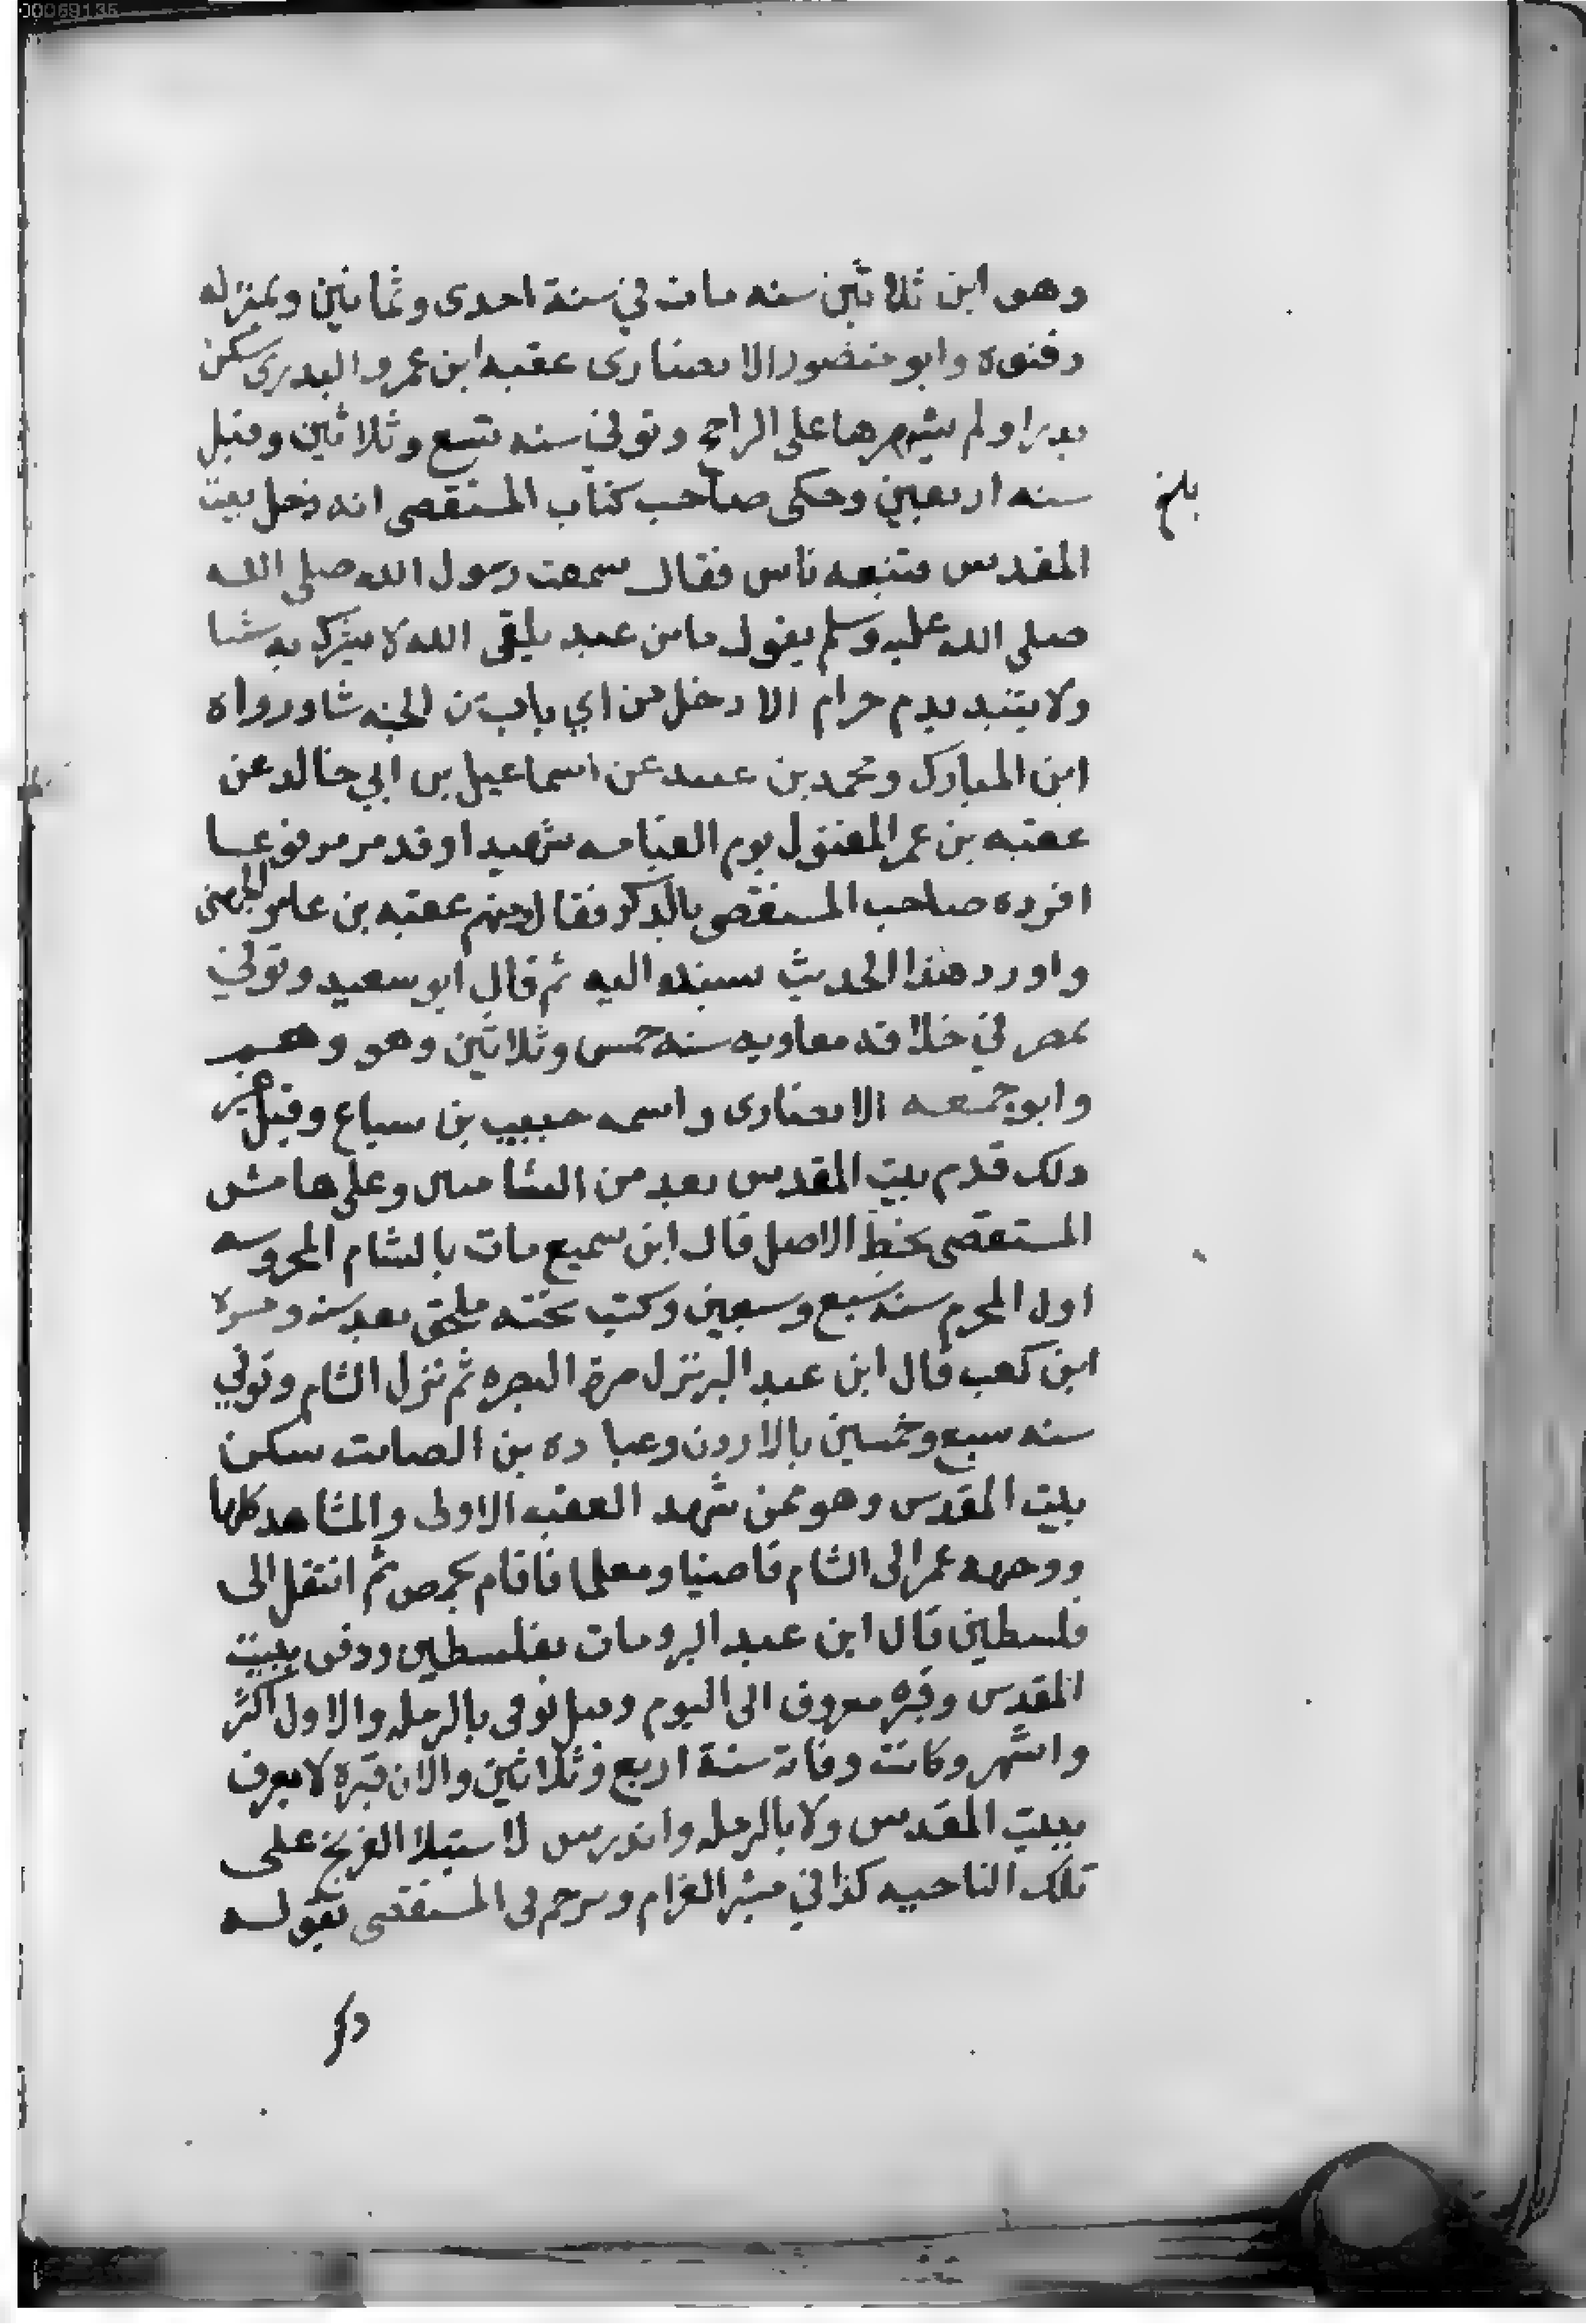 00069135
وهو ابن ثلاثين سنه مات في سنة احدى وثمانين وبمنزله
دفنوه وابو منصور الانصارى عقبه ابن عمرو البدرى سكن
بدرا ولم يشهرها على الراجح وتوفي سنه تسع وثلاثين وقيل
سنه اربعين وحكى صاحب كتاب المستقصى انه دخل بيت
بلغ
المقدس فتبعه ناس فقال سمعت رسول الله صلى الله
صلى الله عليه وسلم يقول ما من عبد يلقى الله لا يشرك به شيا
ولا يتند بدم حرام الا دخل من اي باب من الجنه شا ورواه
ابن المبارك ومحمد بن عبيد عن اسماعيل بن ابي خالد عن
عقبه بن عمر المقتول يوم القيامه شهيدا وقد مر مرفوعا
افرده صاحب المستقصى بالذكر فقال ومنهم عقبه بن عامر الجهنى
واورد هذا الحديث بسنده اليه ثم قال ابو سعيد وتوفي
بمصر في خلافه معاويه سنه خمس وثلاثين وهو وهم
وابو جمعه الانصارى واسمه حبيب بن سباع وقيل غير
ذلك قدم بيت المقدس يعد من الشاميين وعلى هامش
المستقصى بخط الاصل قال ابن سميع مات بالشام المحروسه
اول المحرم سنه سبع وسبعين وكتب تحته ملحق بعد سنه ومره
ابن كعب قال ابن عبد البر نزل مرة البصره ثم نزل الشام وتوفي
سنه سبع وخمسين بالاردن وعباده بن الصامت سكن
بيت المقدس وهو ممن شهد العقبه الاولى والمشاهد كلها
ووجهه عمر الى الشام قاضيا ومعلما فاقام بحمص ثم انتقل الى
فلسطين قال ابن عبد البر ومات بفلسطين ودفن ببيت
المقدس وقبره معروف الى اليوم وقيل توفى بالرمله والاول اكثر
واشهر وكانت وفاته سنة اربع وثلاثين والان قبره لا يعرف
ببيت المقدس ولا بالرمله واندرس لاستيلا الفرنج على
تلك الناحيه كذا في مثير الغرام وترجم في المستقصى بقوله
ذكر